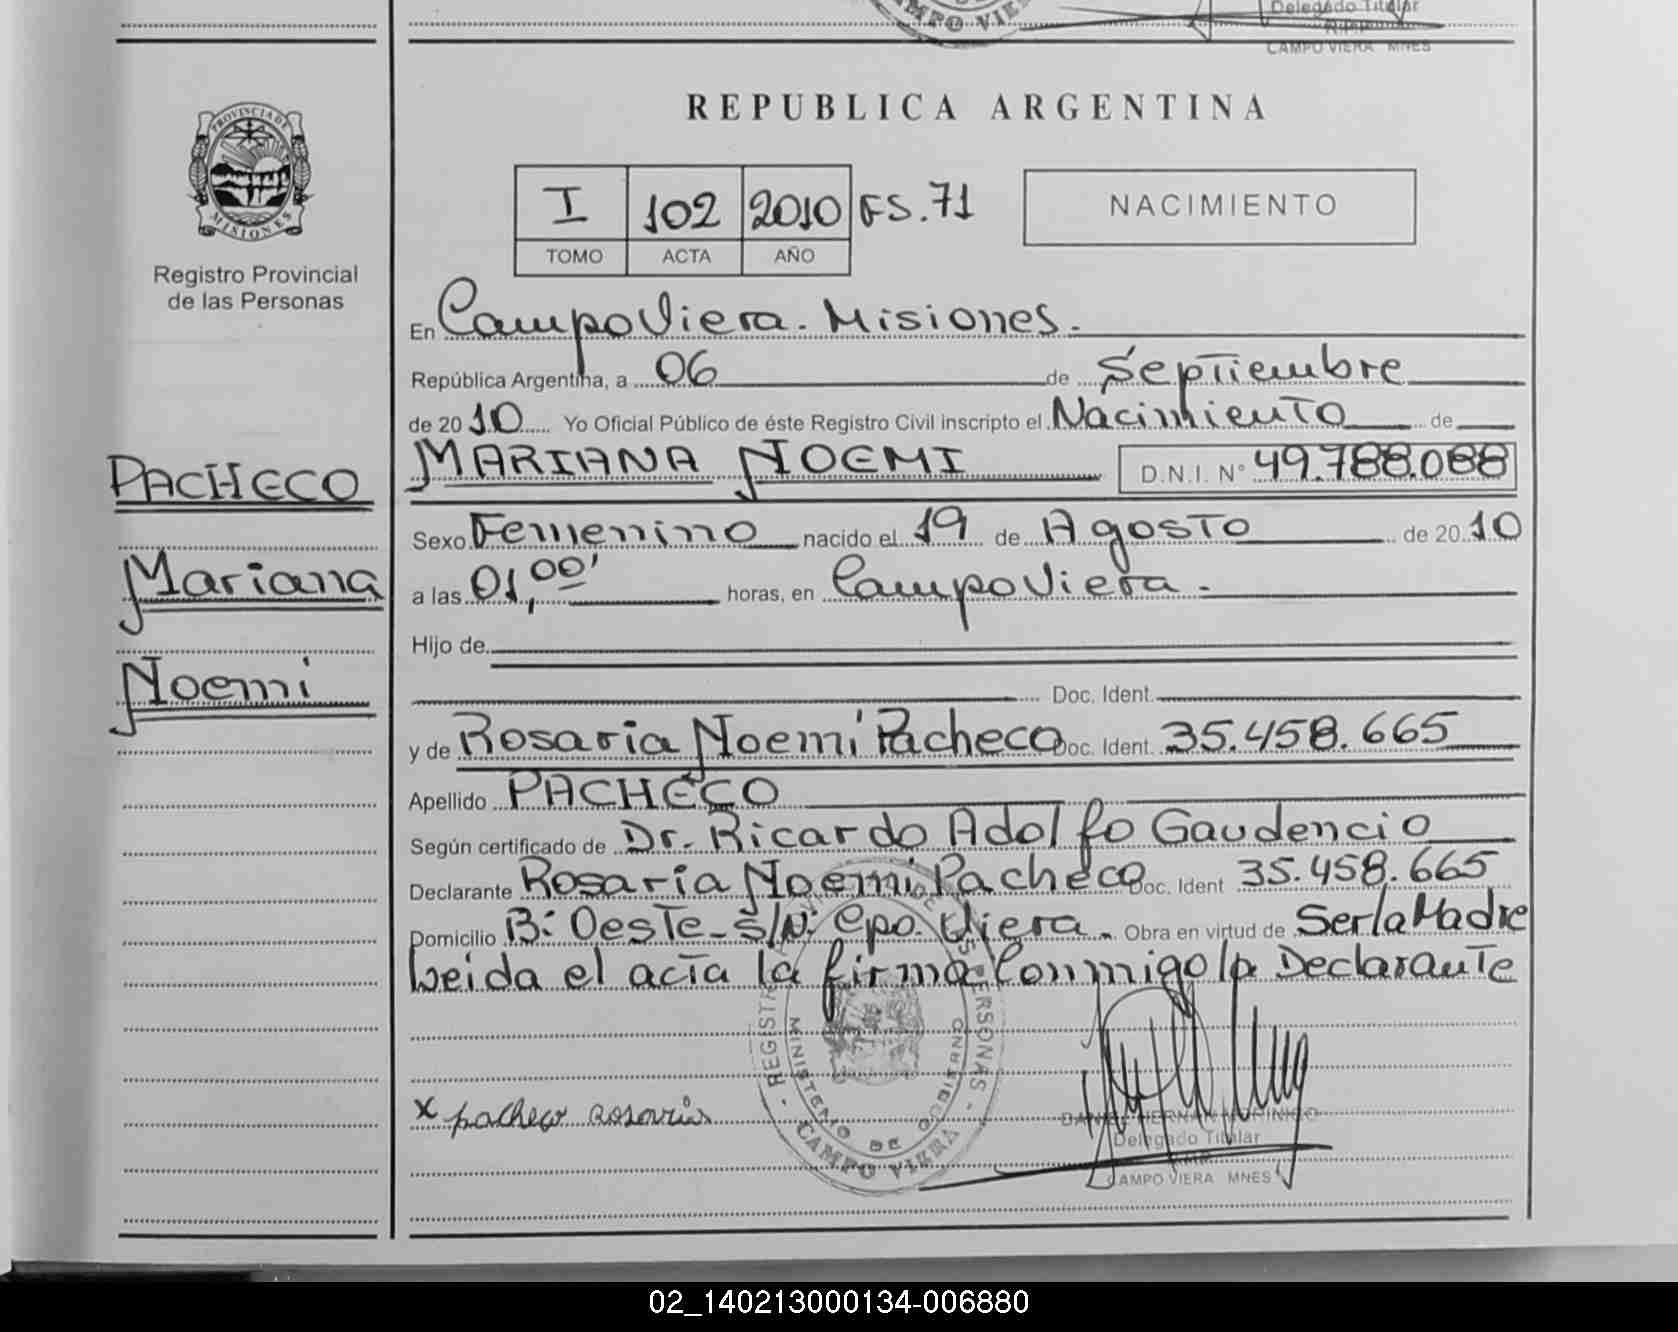 CAMPO VIERA
Delegado Titular
CAMPO VIERA MNES
PROVINCIA DE
MISIONES
Registro Provincial
de las Personas
REPUBLICA ARGENTINA
I 102 2010 FS. 71
TOMO ACTA AÑO
NACIMIENTO
En Campo Viera. Misiones.
República Argentina, a 06 de Septiembre
de 2010 Yo Oficial Público de éste Registro Civil inscripto el Nacimiento de
MARIANA NOEMI D.N.I. N° 49.788.088
PACHECO
Mariana
Noemi
Sexo Femenino nacido el 19 de Agosto de 2010
a las 01,00' horas, en Campo Viera.
Hijo de
Doc. Ident.
y de Rosaria Noemi Pacheco Doc. Ident. 35.458.665
Apellido PACHECO
Según certificado de Dr. Ricardo Adolfo Gaudencio
Declarante Rosaria Noemi Pacheco Doc. Ident 35.458.665
Domicilio B: Oeste - S/N: Cpo. Viera. Obra en virtud de Ser la Madre
Leida el acta la firma Conmigo la Declarante
x pacheco Rosaria
MINISTERIO DE GOBIERNO
CAMPO VIERA
Delegado Titular
CAMPO VIERA MNES
02_140213000134-006880